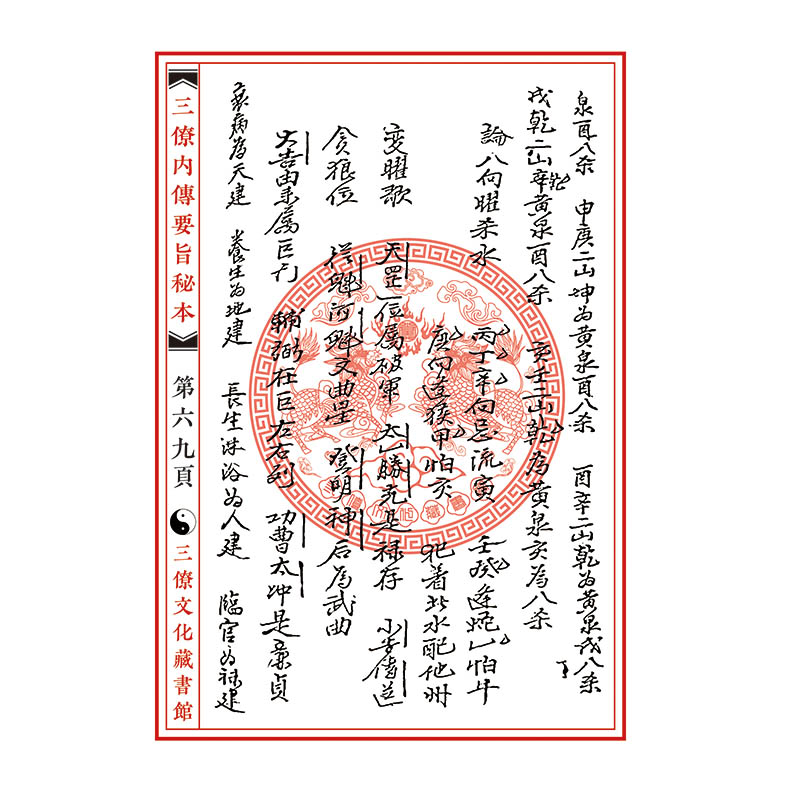 泉酉八杀　申庚二山坤为黄泉酉八杀　酉辛二山乾为黄泉戌八杀
戌乾二山辛黄泉酉八杀　亥壬二山乾为黄泉亥為八杀
論八向曜杀水　丙丁辛向忌流寅　壬癸逢蛇乙怕牛
庚向逢猴甲怕亥　犯着此水配他州
变曜歌　天罡位属破軍　太乙勝光是禄存　小吉傳送
贪狼位　從魁河魁文曲星　登明神后為武曲
大吉由未属巨門　輔弼在巨左右列　功曹太冲是亷貞
衰病為天建　養生为地建　長生沐浴为人建　臨官为禄建
三僚内傳要旨秘本
第六九頁
三僚文化藏書館